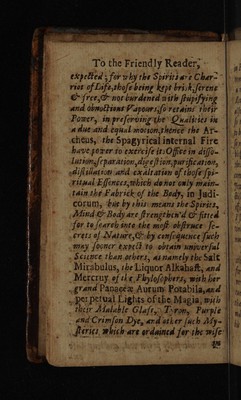 To the Friendly Reader,
expected; for why the Spirits are Char-
riot of Life, those being kept brisk, serene
& free, & not burdened with stupifying
and obnoctious Vapours, so retains their
Power, in preserving the Qualities in
a due and equal motion, thence the Ar-
cheus, the Spagyrical internal Fire
have power to exercise its Office in disso-
lution, separation, digestion, purification,
distillation and exaltation of those spi-
ritual Essences, which do not only main-
tain the Fabrick of the Body, in Judi-
eorum, but by this means the Spirits,
Mind & Body are strengthen'd & fitted
for to search into the most obstruce Se-
crets of Nature, & by consequence such
may sooner expect to obtain universal
Science than others, as namely the Salt
Mirabulus, the Liquor Alkahest, and
Mercury of the Phylosophers, with her
grand Panacea Aurum Potabila, and
perpetual Lights of the Magia, with
their Malable Glass, Tyron, Purple
and Crimson Dye, and other such My-
steries which are ordained for the wise